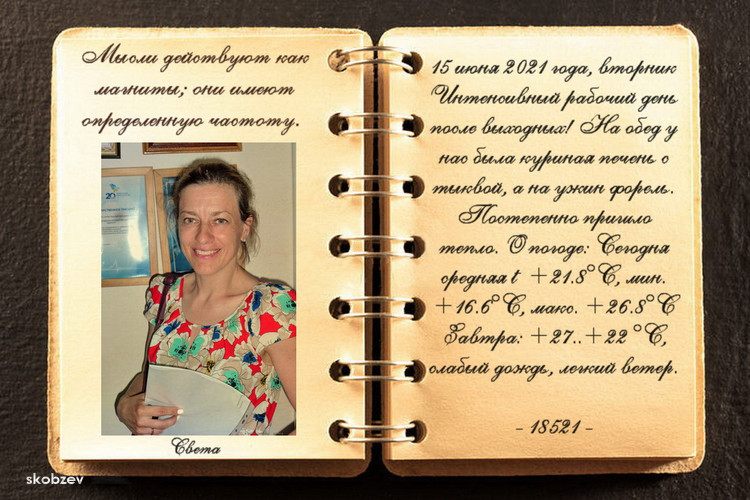 Мысли действуют как
магниты; они имеют
определенную частоту.
20
Света
15 июня 2021 года, вторник
Интенсивный рабочий день
после выходных! На обед у
нас была куриная печень с
тыквой, а на ужин форель.
Постепенно пришло
тепло. О погоде: Сегодня
средняя t +21.8°С, мин.
+16.6°С, макс. +26.8°С
Завтра: +27..+22 °С,
слабый дождь, легкий ветер.
- 18521 -
skobzev